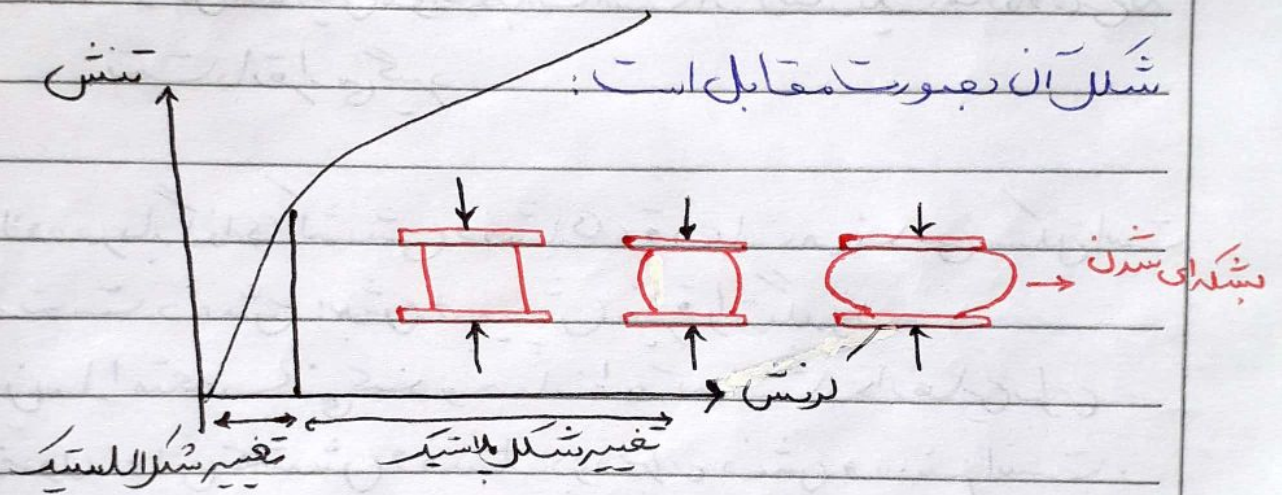 شکل آن بصورت مقابل است:
تنش
بشکه‌ای شدن
کرنش
تغییر شکل الاستیک
تغییر شکل پلاستیک